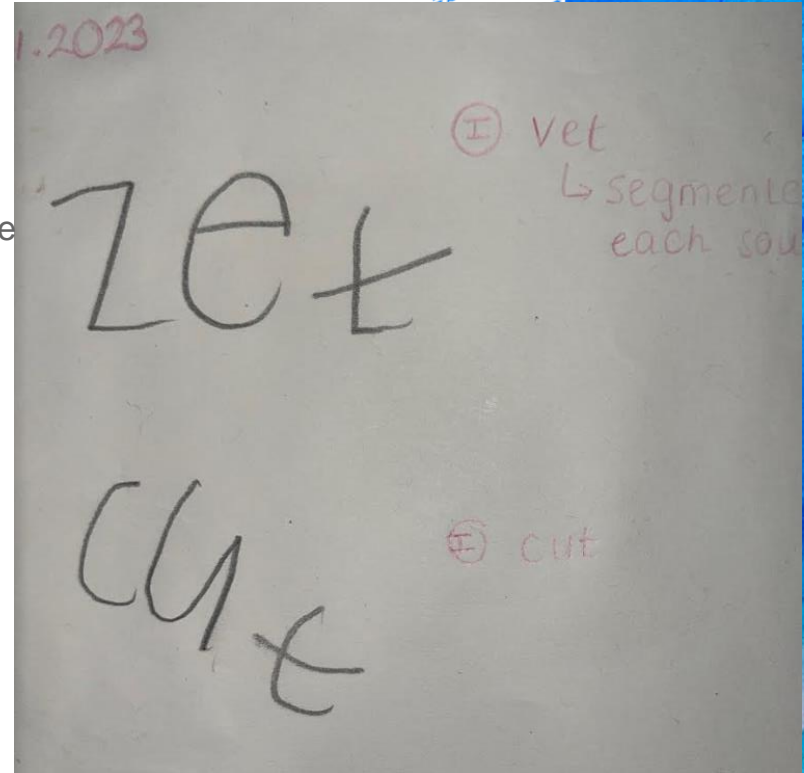 1.2023
I vet
↳ segmente
each sou
zet
e
cut
I cut